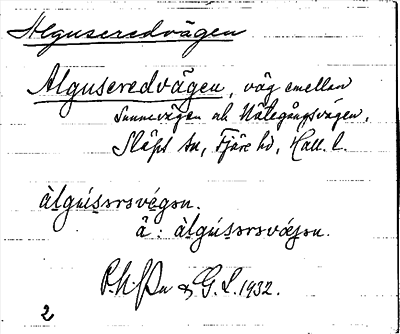 Alguseredvägen
Alguseredvägen, väg emellan
Sunnevägen och Nötegångsvägen,
Släps sn, Fjäre hd, Hall. l.
àlgúsərsvégən.
ä : àlgúsərsvǽgən.
G. L. 1932.
2